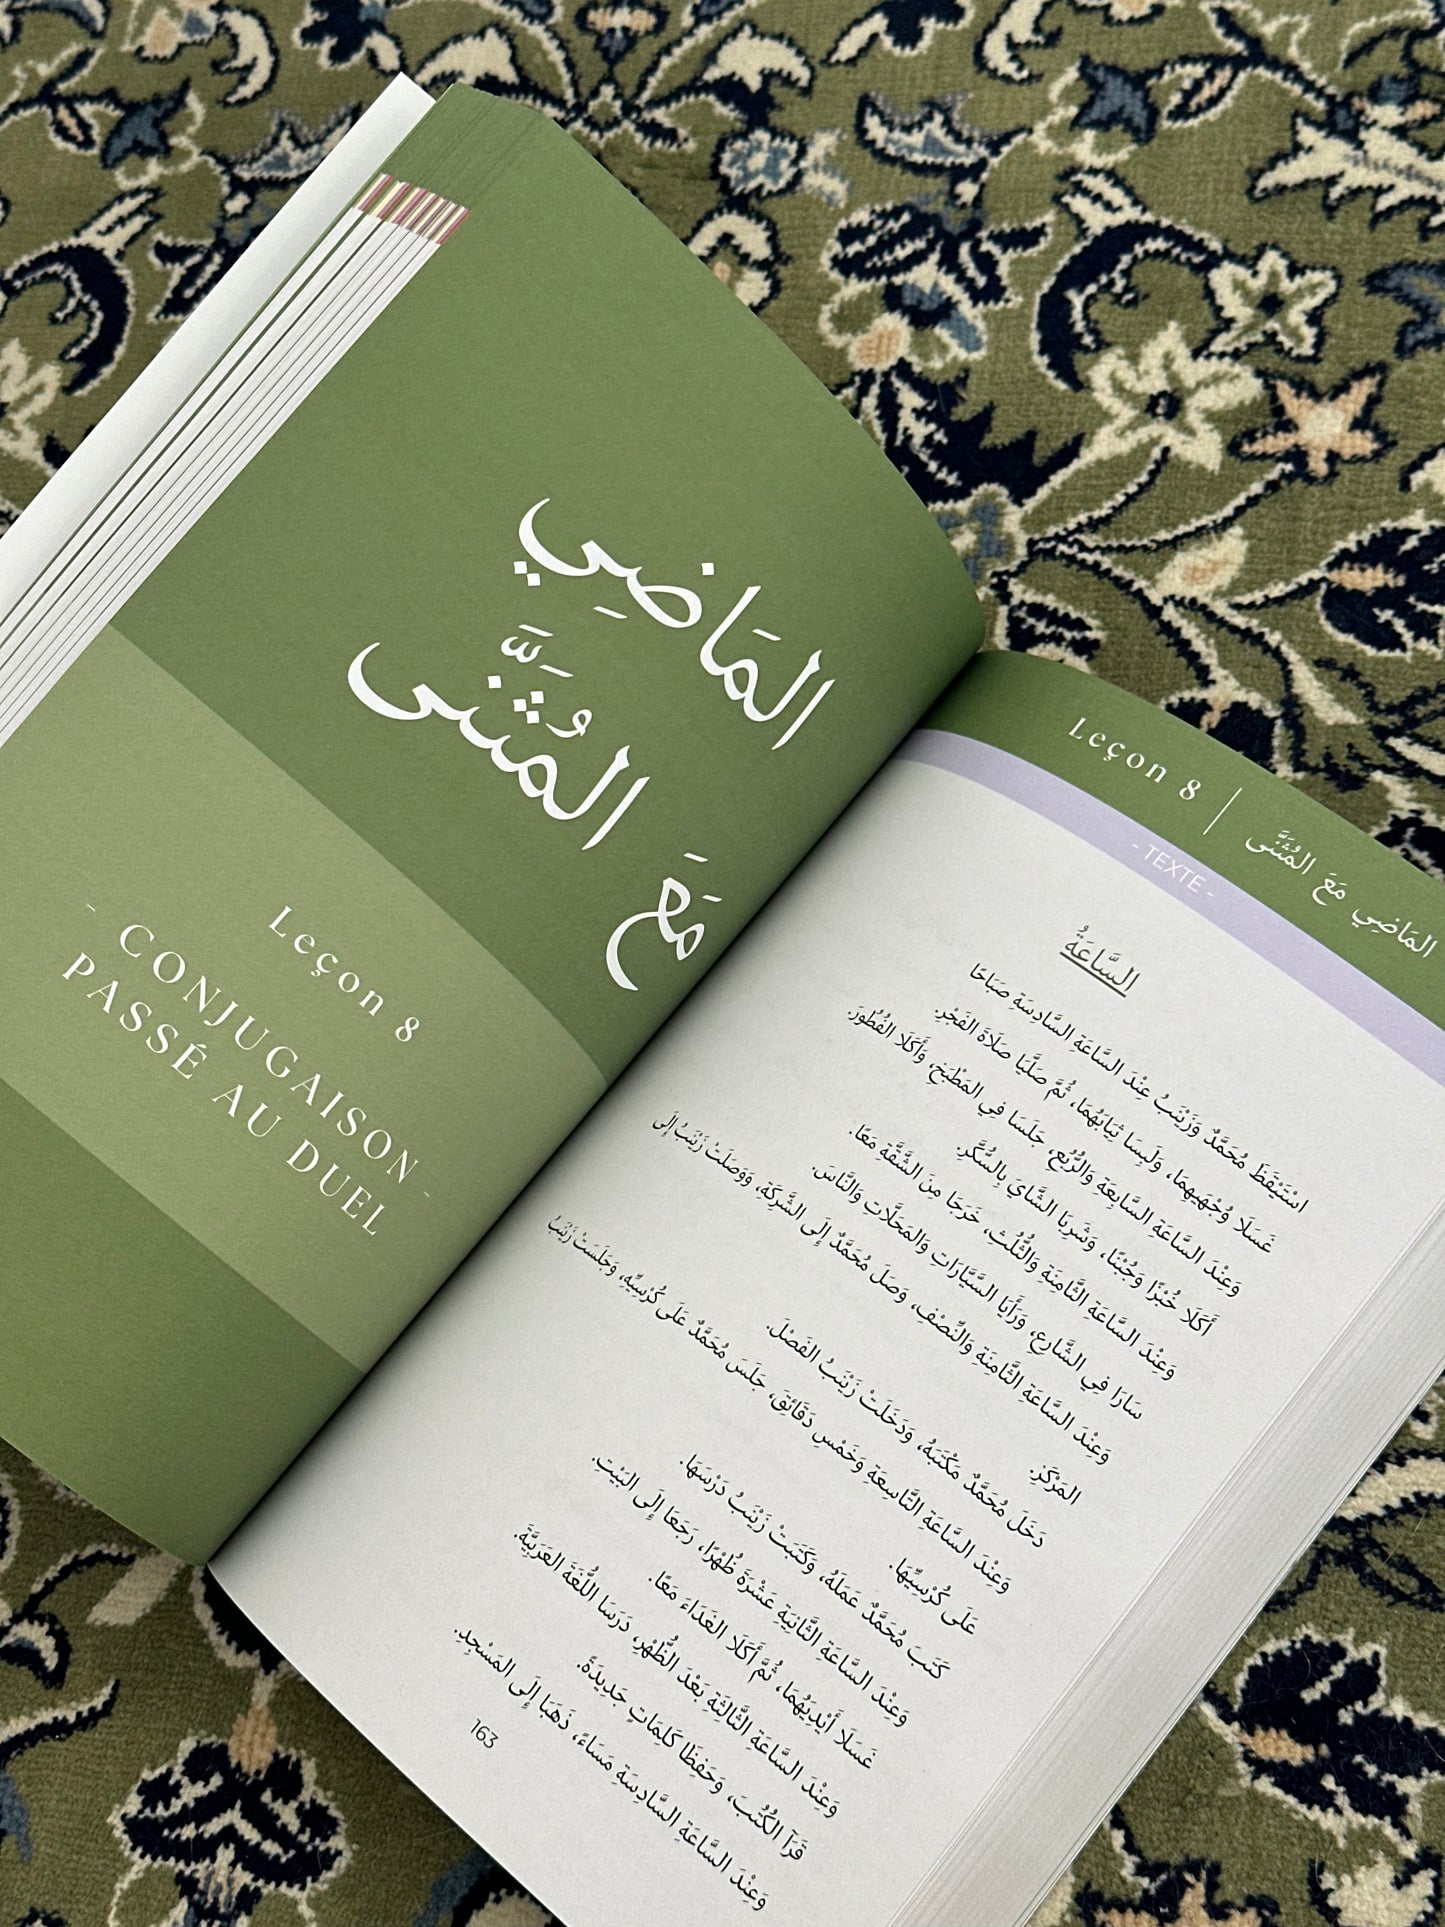 المَاضِي
مَعَ المُثَنَّى
Leçon 8
- CONJUGAISON -
PASSÉ AU DUEL
Leçon 8 | المَاضِي مَعَ المُثَنَّى
- TEXTE -
السَّاعَةُ
اسْتَيْقَظَ مُحَمَّدٌ وَزَيْنَبُ عِنْدَ السَّاعَةِ السَّادِسَةِ صَبَاحًا
غَسَلَا وُجْهَيهِمَا، وَلَبِسَا ثِيَابَهُمَا، ثُمَّ صَلَّيَا صَلَاةَ الفَجْرِ.
وَعِنْدَ السَّاعَةِ السَّابِعَةِ وَالرُّبُعِ، جَلَسَا فِي المَطْبَخِ، وَأَكَلَا الفُطُورَ.
أَكَلَا خُبْزًا وَجُبْنًا، وَشَرِبَا الشَّايَ بِالسُّكَّرِ.
وَعِنْدَ السَّاعَةِ الثَّامِنَةِ وَالثُّلُثِ، خَرَجَا مِنَ الشَّقَّةِ مَعًا.
سَارَا فِي الشَّارِعِ، وَرَأَيَا السَّيَّارَاتِ وَالمَحَلَّاتِ وَالنَّاسَ.
وَعِنْدَ السَّاعَةِ الثَّامِنَةِ وَالنِّصْفِ، وَصَلَ مُحَمَّدٌ إِلَى الشَّرِكَةِ، وَوَصَلَتْ زَيْنَبُ إِلَى
المَرْكَزِ.
دَخَلَ مُحَمَّدٌ مَكْتَبَهُ، وَدَخَلَتْ زَيْنَبُ الفَصْلَ.
وَعِنْدَ السَّاعَةِ التَّاسِعَةِ وَخَمْسِ دَقَائِقَ، جَلَسَ مُحَمَّدٌ عَلَى كُرْسِيِّهِ، وَجَلَسَتْ زَيْنَبُ
عَلَى كُرْسِيِّهَا.
كَتَبَ مُحَمَّدٌ عَمَلَهُ، وَكَتَبَتْ زَيْنَبُ دَرْسَهَا.
وَعِنْدَ السَّاعَةِ الثَّانِيَةِ عَشْرَةَ ظُهْرًا، رَجَعَا إِلَى البَيْتِ.
غَسَلَا أَيْدِيَهُمَا، ثُمَّ أَكَلَا الغَدَاءَ مَعًا.
وَعِنْدَ السَّاعَةِ الثَّالِثَةِ بَعْدَ الظُّهْرِ، دَرَسَا اللُّغَةَ العَرَبِيَّةَ.
قَرَآ الكُتُبَ، وَحَفِظَا كَلِمَاتٍ جَدِيدَةً.
وَعِنْدَ السَّاعَةِ السَّادِسَةِ مَسَاءً، ذَهَبَا إِلَى المَسْجِدِ.
163